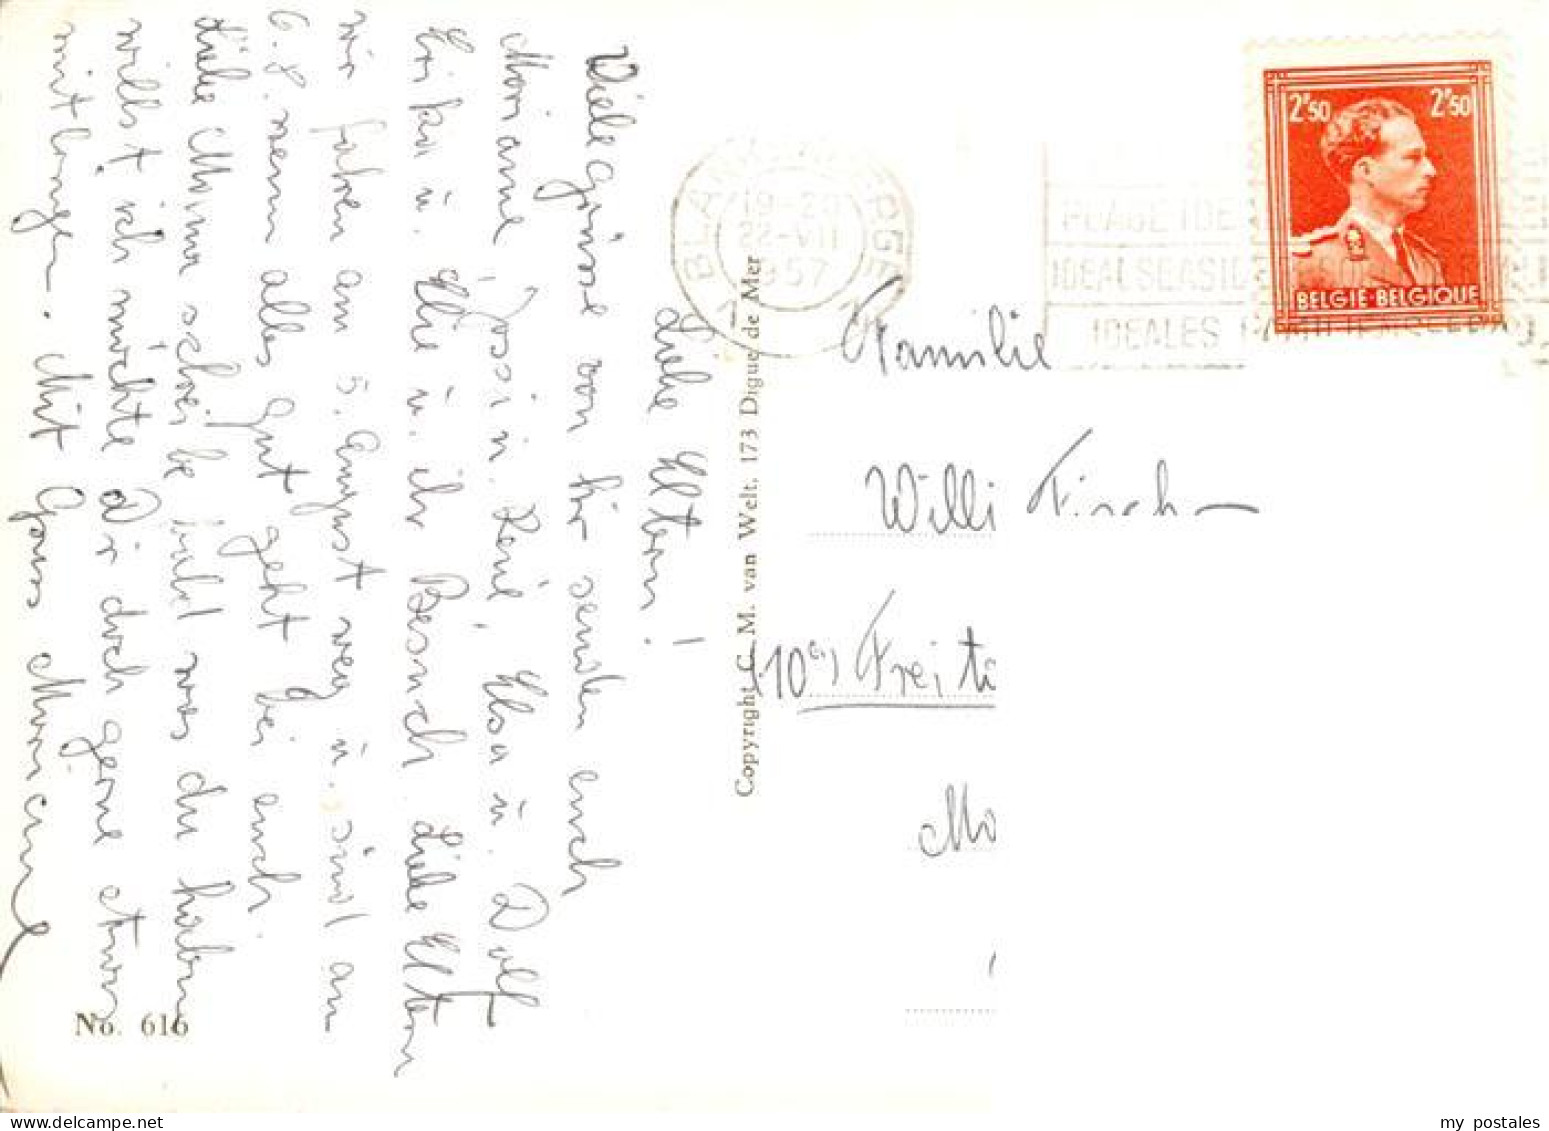 Liebe Eltern!
Viele Grüsse von hir senden euch
Marianne, Jossi u. René, Elsa u. Dolf
Erika u. Elie u. ihr Besuch. Liebe Eltern
wir fahren am 5. August weg u. sind am
6. 8. wenn alles gut geht bei euch.
Liebe Mama schreibe bald was du haben
willst ich möchte Dir doch gerne etwas
mitbringen. Mit Gruss Marianne
No. 616
Copyright C. M. van Welt, 173 Digue de Mer
19-20
22-VII
1957
PLAGE IDE
IDEAL SEASIDE
IDEALES FAMILIENSEEBAD
2F50 2F50
BELGIE-BELGIQUE
Familie
Willi Fischer
(10a) Freita
Mo
my postales